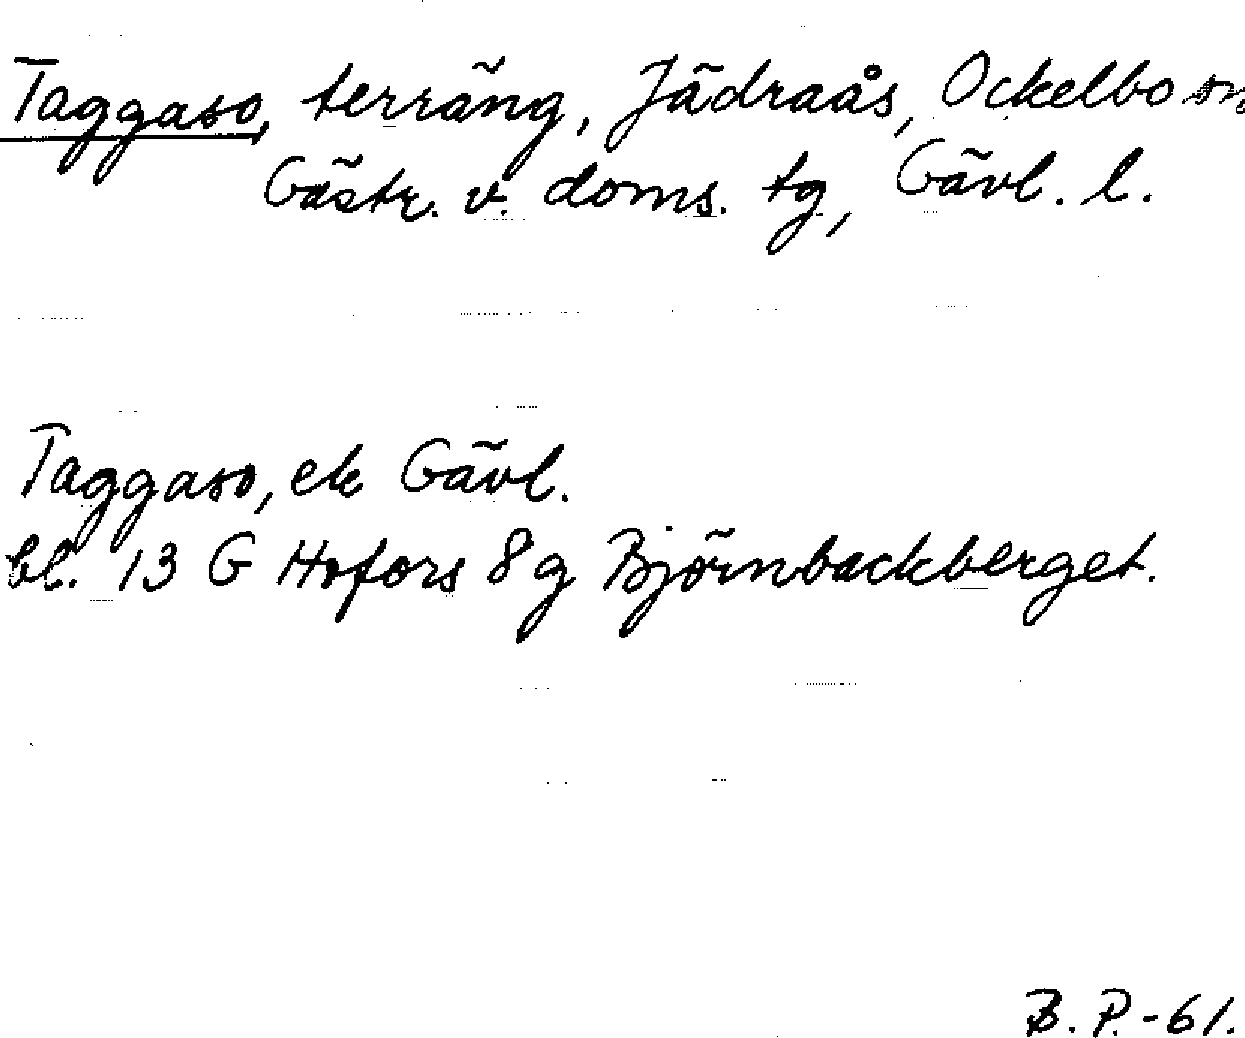 Taggaso, terräng, Jädraås, Ockelbo sn
Gästr. v. doms. tg, Gävl. l.
Taggaso, ek Gävl.
bl. 13 G Hofors 8 g Björnbackberget.
B. P. -61.